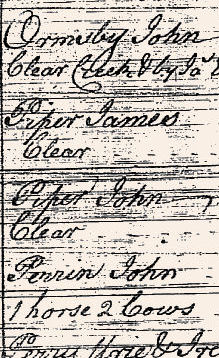 Ormsby John
Clear Check & by Jas
Piper James
Clear
Piper John
Clear
Perrin John
1 horse 2 Cows
Perry